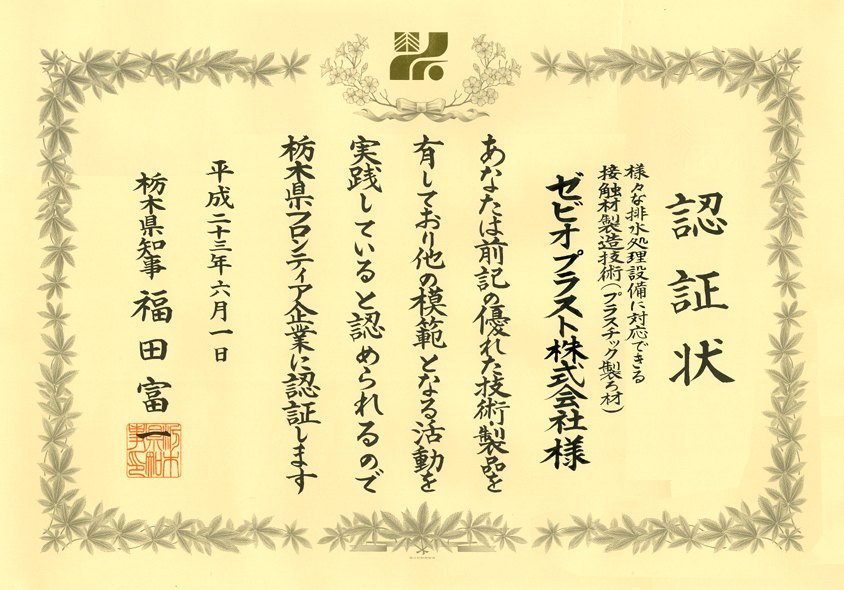 認証状
様々な排水処理設備に対応できる
接触材製造技術(プラスチック製ろ材)
ゼビオプラスト株式会社様
あなたは前記の優れた技術製品を
有しており他の模範となる活動を
実践していると認められるので
栃木県フロンティア企業に認証します
平成二十三年六月一日
栃木県知事 福田富一